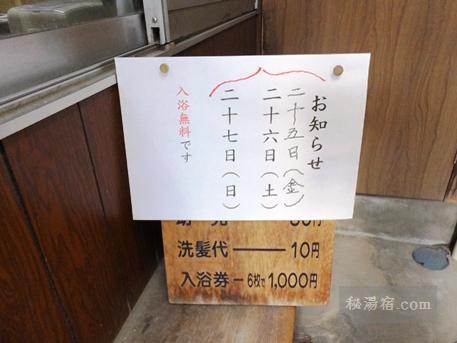 お知らせ
二十五日(金)
二十六日(土)
二十七日(日)
入浴無料です
洗髪代 — 10円
入浴券 — 6枚で 1,000円
秘湯宿.com